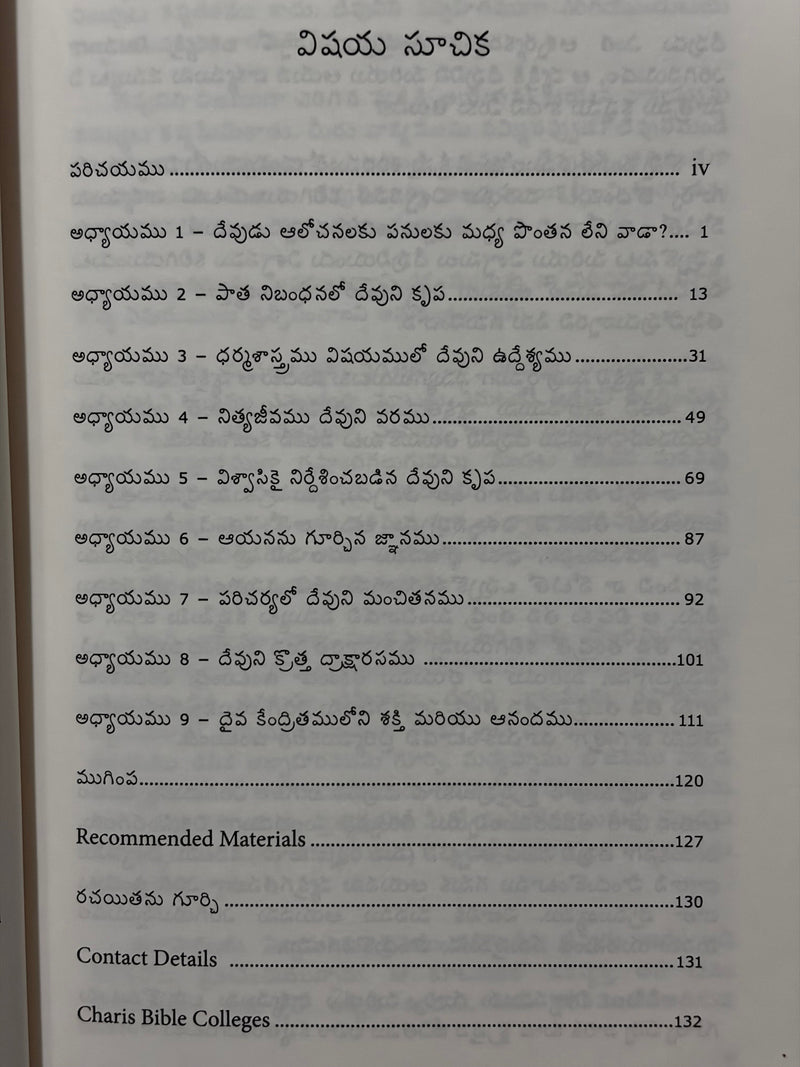 విషయ సూచిక
పరిచయము .................................................................................................... iv
అధ్యాయము 1 – దేవుడు ఆలోచనలకు పనులకు మధ్య పొంతన లేని వాడా?.... 1
అధ్యాయము 2 – పాత నిబంధనలో దేవుని కృప.............................................. 13
అధ్యాయము 3 – ధర్మశాస్త్రము విషయములో దేవుని ఉద్దేశ్యము.......................31
అధ్యాయము 4 – నిత్యజీవము దేవుని వరము.................................................. 49
అధ్యాయము 5 – విశ్వాసికై నిర్దేశించబడిన దేవుని కృప..................................... 69
అధ్యాయము 6 – ఆయనను గూర్చిన జ్ఞానము................................................ 87
అధ్యాయము 7 – పరిచర్యలో దేవుని మంచితనము........................................... 92
అధ్యాయము 8 – దేవుని క్రొత్త ద్రాక్షారసము ...................................................101
అధ్యాయము 9 – దైవ కేంద్రితములోని శక్తి మరియు ఆనందము.................... 111
ముగింప............................................................................................................120
Recommended Materials ..........................................................................127
రచయితను గూర్చి ...........................................................................................130
Contact Details ..........................................................................................131
Charis Bible Colleges .................................................................................132